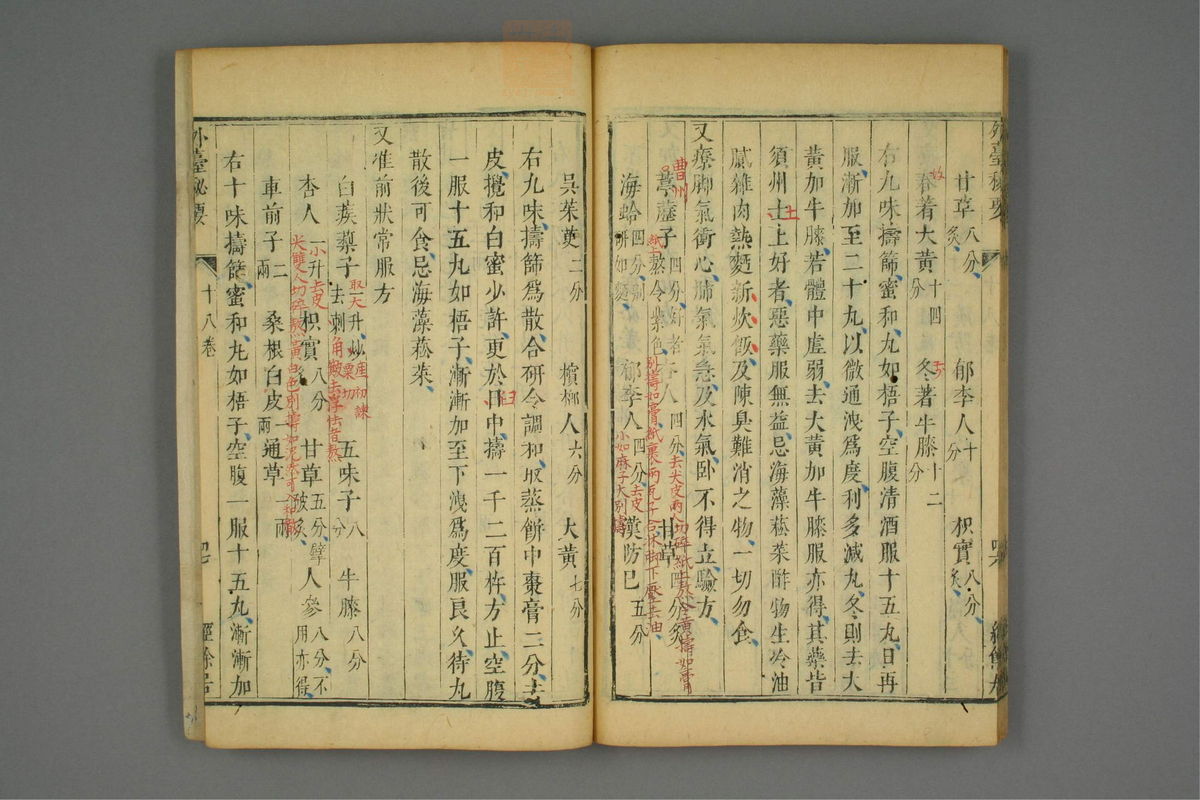 外臺秘要
甘草八分炙 郁李人十分 枳實八分炙
春着大黃十四分 冬著牛膝十二分
右九味擣篩蜜和丸如梧子空腹清酒服十五丸日再
服漸加至二十丸以微通洩爲度利多減丸冬則去大
黃加牛膝若體中虛弱去大黃加牛膝服亦得其藥皆
須州土上好者惡藥服無益忌海藻菘菜酢物生冷油
膩雜肉熱麪新炊飯及陳臭難消之物一切勿食
又療脚氣衝心肺氣氣急及水氣臥不得立驗方
曹州
葶藶子四分好者 紙上熬令紫色 杏人四分去尖皮兩人 甘草四分炙
海蛤四分別研如麪 郁李人四分去皮 漢防已五分
吳茱萸二分 檳榔人六分 大黃七分
右九味擣篩爲散合研令調和取蒸餅中棗膏二分去
皮攪和白蜜少許更於臼中擣一千二百杵方止空腹
一服十五丸如梧子漸漸加至下洩爲度服良久待丸
散後可食忌海藻菘菜
又准前狀常服方
白蒺藜子去刺 取一大升炒 五味子八分 牛膝八分
杏人一小升去皮 枳實八分炙 甘草五分擘破炙 人參八分不用亦得
車前子二兩 桑根白皮一兩 通草一兩
右十味擣篩蜜和丸如梧子空腹一服十五丸漸漸加
外臺秘要 十八卷 經餘居